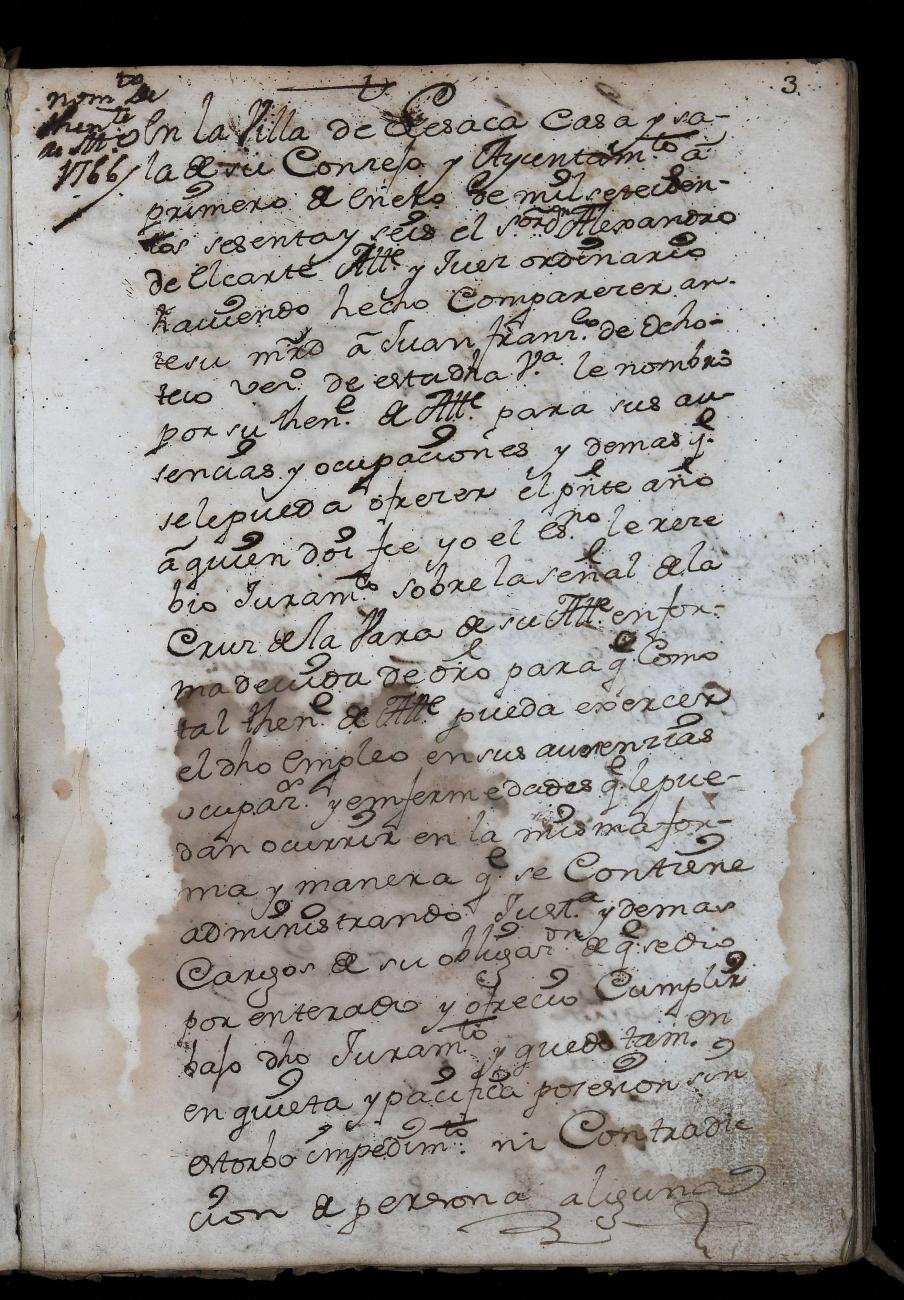 3
nom.to de
then.te
de Alt.e
1766
En la Villa de Lesaca Casa y sa-
la de su Consejo y Ayuntam.to à
primero de Enero de mil setecien-
tos sesenta y seis el sor dn Alexandro
de Elcarte Alt.e y Juez ordinario
haciendo hecho Comparezer an-
te su mrd â Juan fran.co de Ocho-
teco vez.o de esta dha V.a le nombrò
por su then.e de Alt.e para sus au-
sencias y ocupaciones y demas q.e
se le pueda ofrezer el pñte año
â quien doi fee yo el Es.no le rere
bio Juram.to sobre la señal de la
Cruz de la Vara de su Alt.e en for-
ma devida de dro para q.e Como
tal then.e de Alt.e pueda exercer
el dho Empleo en sus ausenzias
ocupaz.s y enfermedades q.e le pue-
dan ocurrir en la misma for-
ma y manera q.e se Contiene
administrando Just.a y demas
Cargos de su obligaz.on de q.e se dio
por enterado y ofrecio Cumplir
bajo dho Juram.to y quedò tam.en
en quieta y pacifica posesion sin
estorbo impedim.to ni Contradic
cion de persona alguna